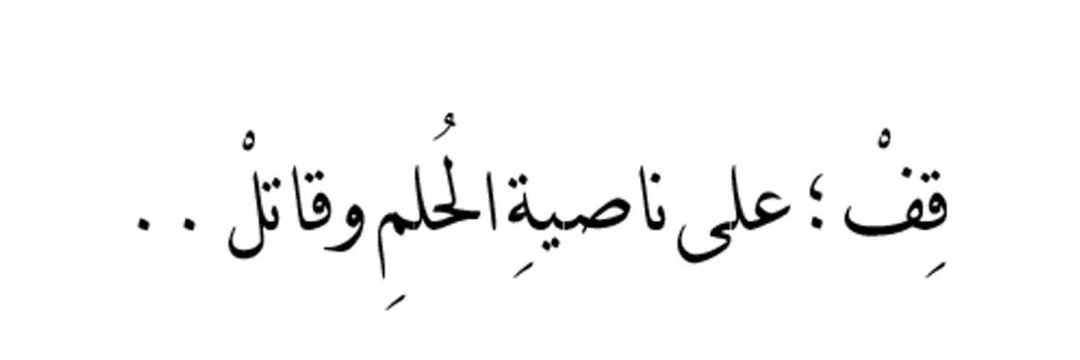 قِفْ ؛ على ناصيةِ الحُلمِ وقاتلْ ..